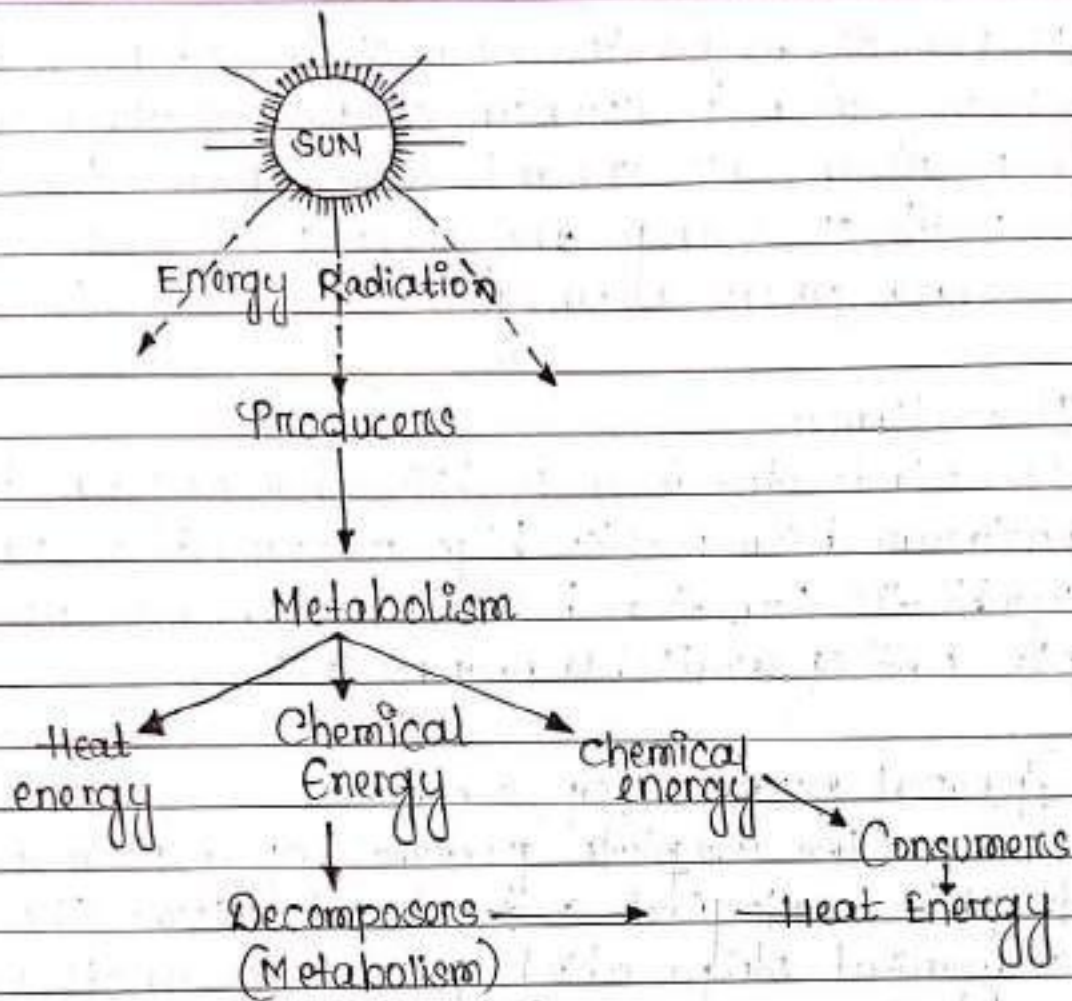 SUN
Energy Radiation
Producers
Metabolism
Heat
energy
Chemical
Energy
Chemical
energy
Consumers
Decomposers
(Metabolism)
Heat Energy